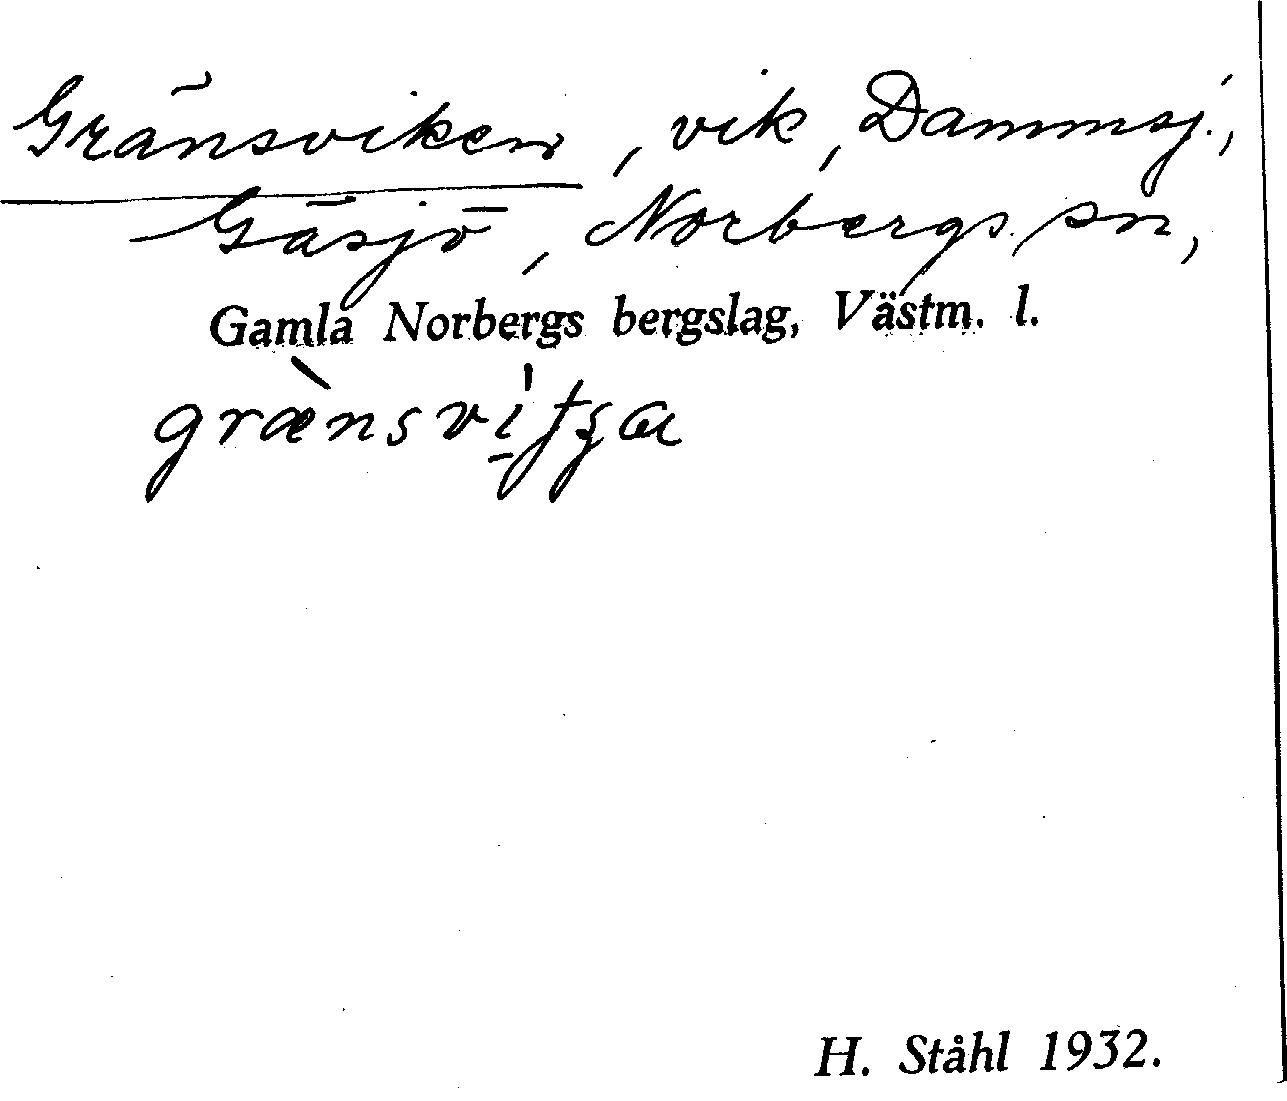 Gränsviken, vik, Dammsj.,
Gäsjö, Norbergs sn,
Gamla Norbergs bergslag, Västm. l.
H. Ståhl 1932.